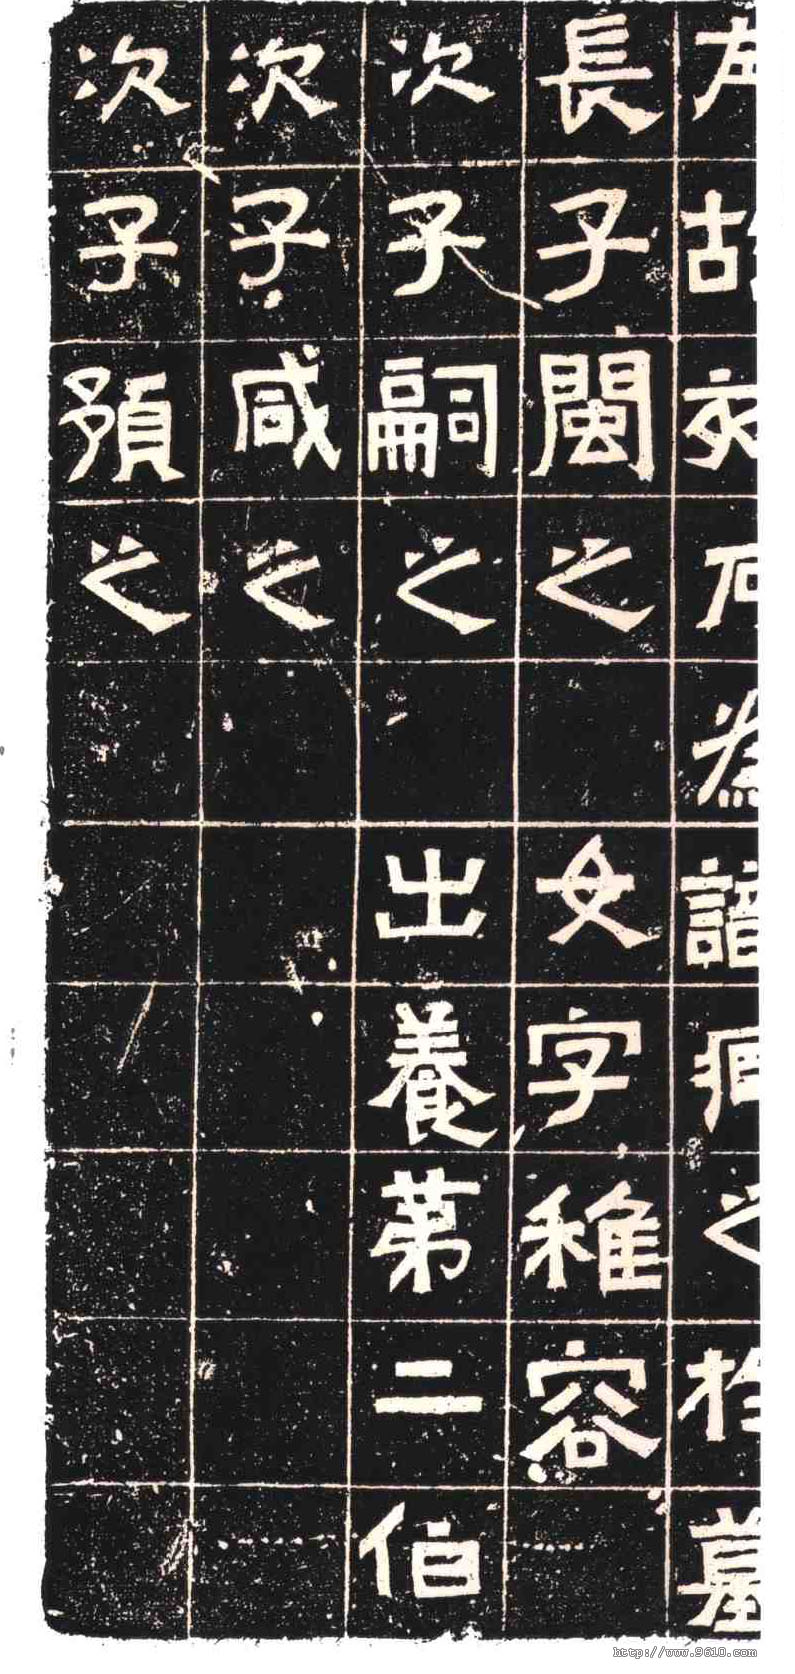 左故刻石為識臧之於墓
長子閩之 女字稚容
次子嗣之 出養苐二伯
次子咸之
次子預之
http://www.9610.com